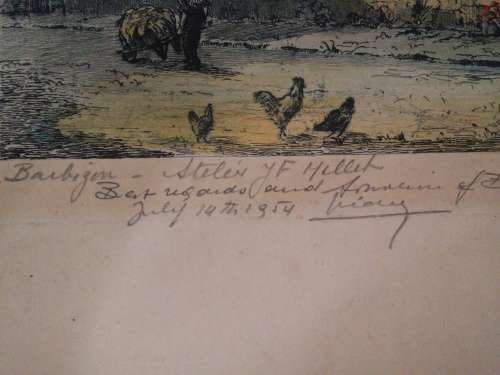 Barbizon - Atelier JF Millet
Best regards and Souvenir of B
July 14th 1954